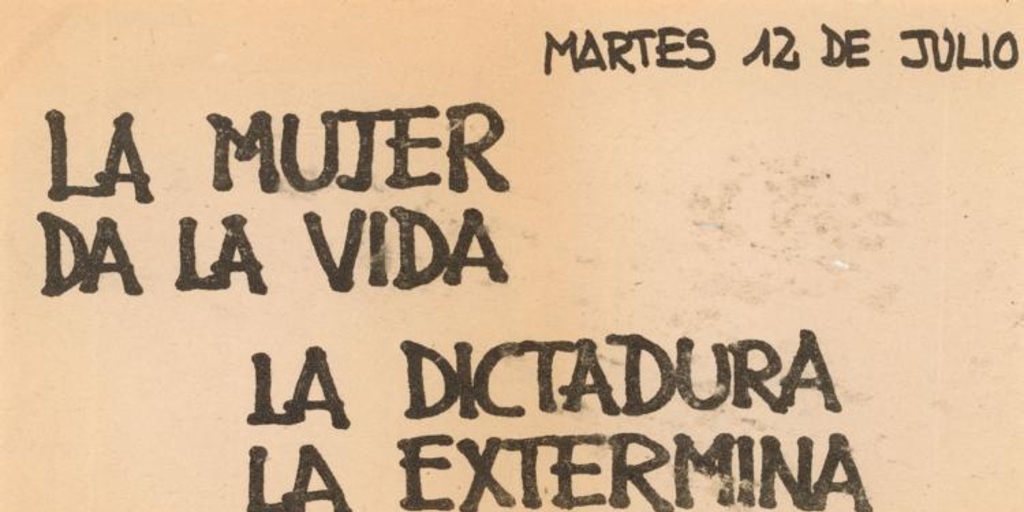 MARTES 12 DE JULIO
LA MUJER
DA LA VIDA
LA DICTADURA
LA EXTERMINA